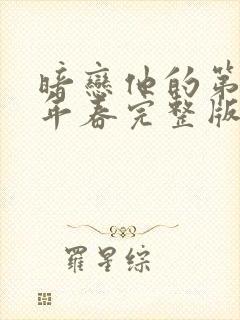 暗戀他的第
年春完整版
羅星綜